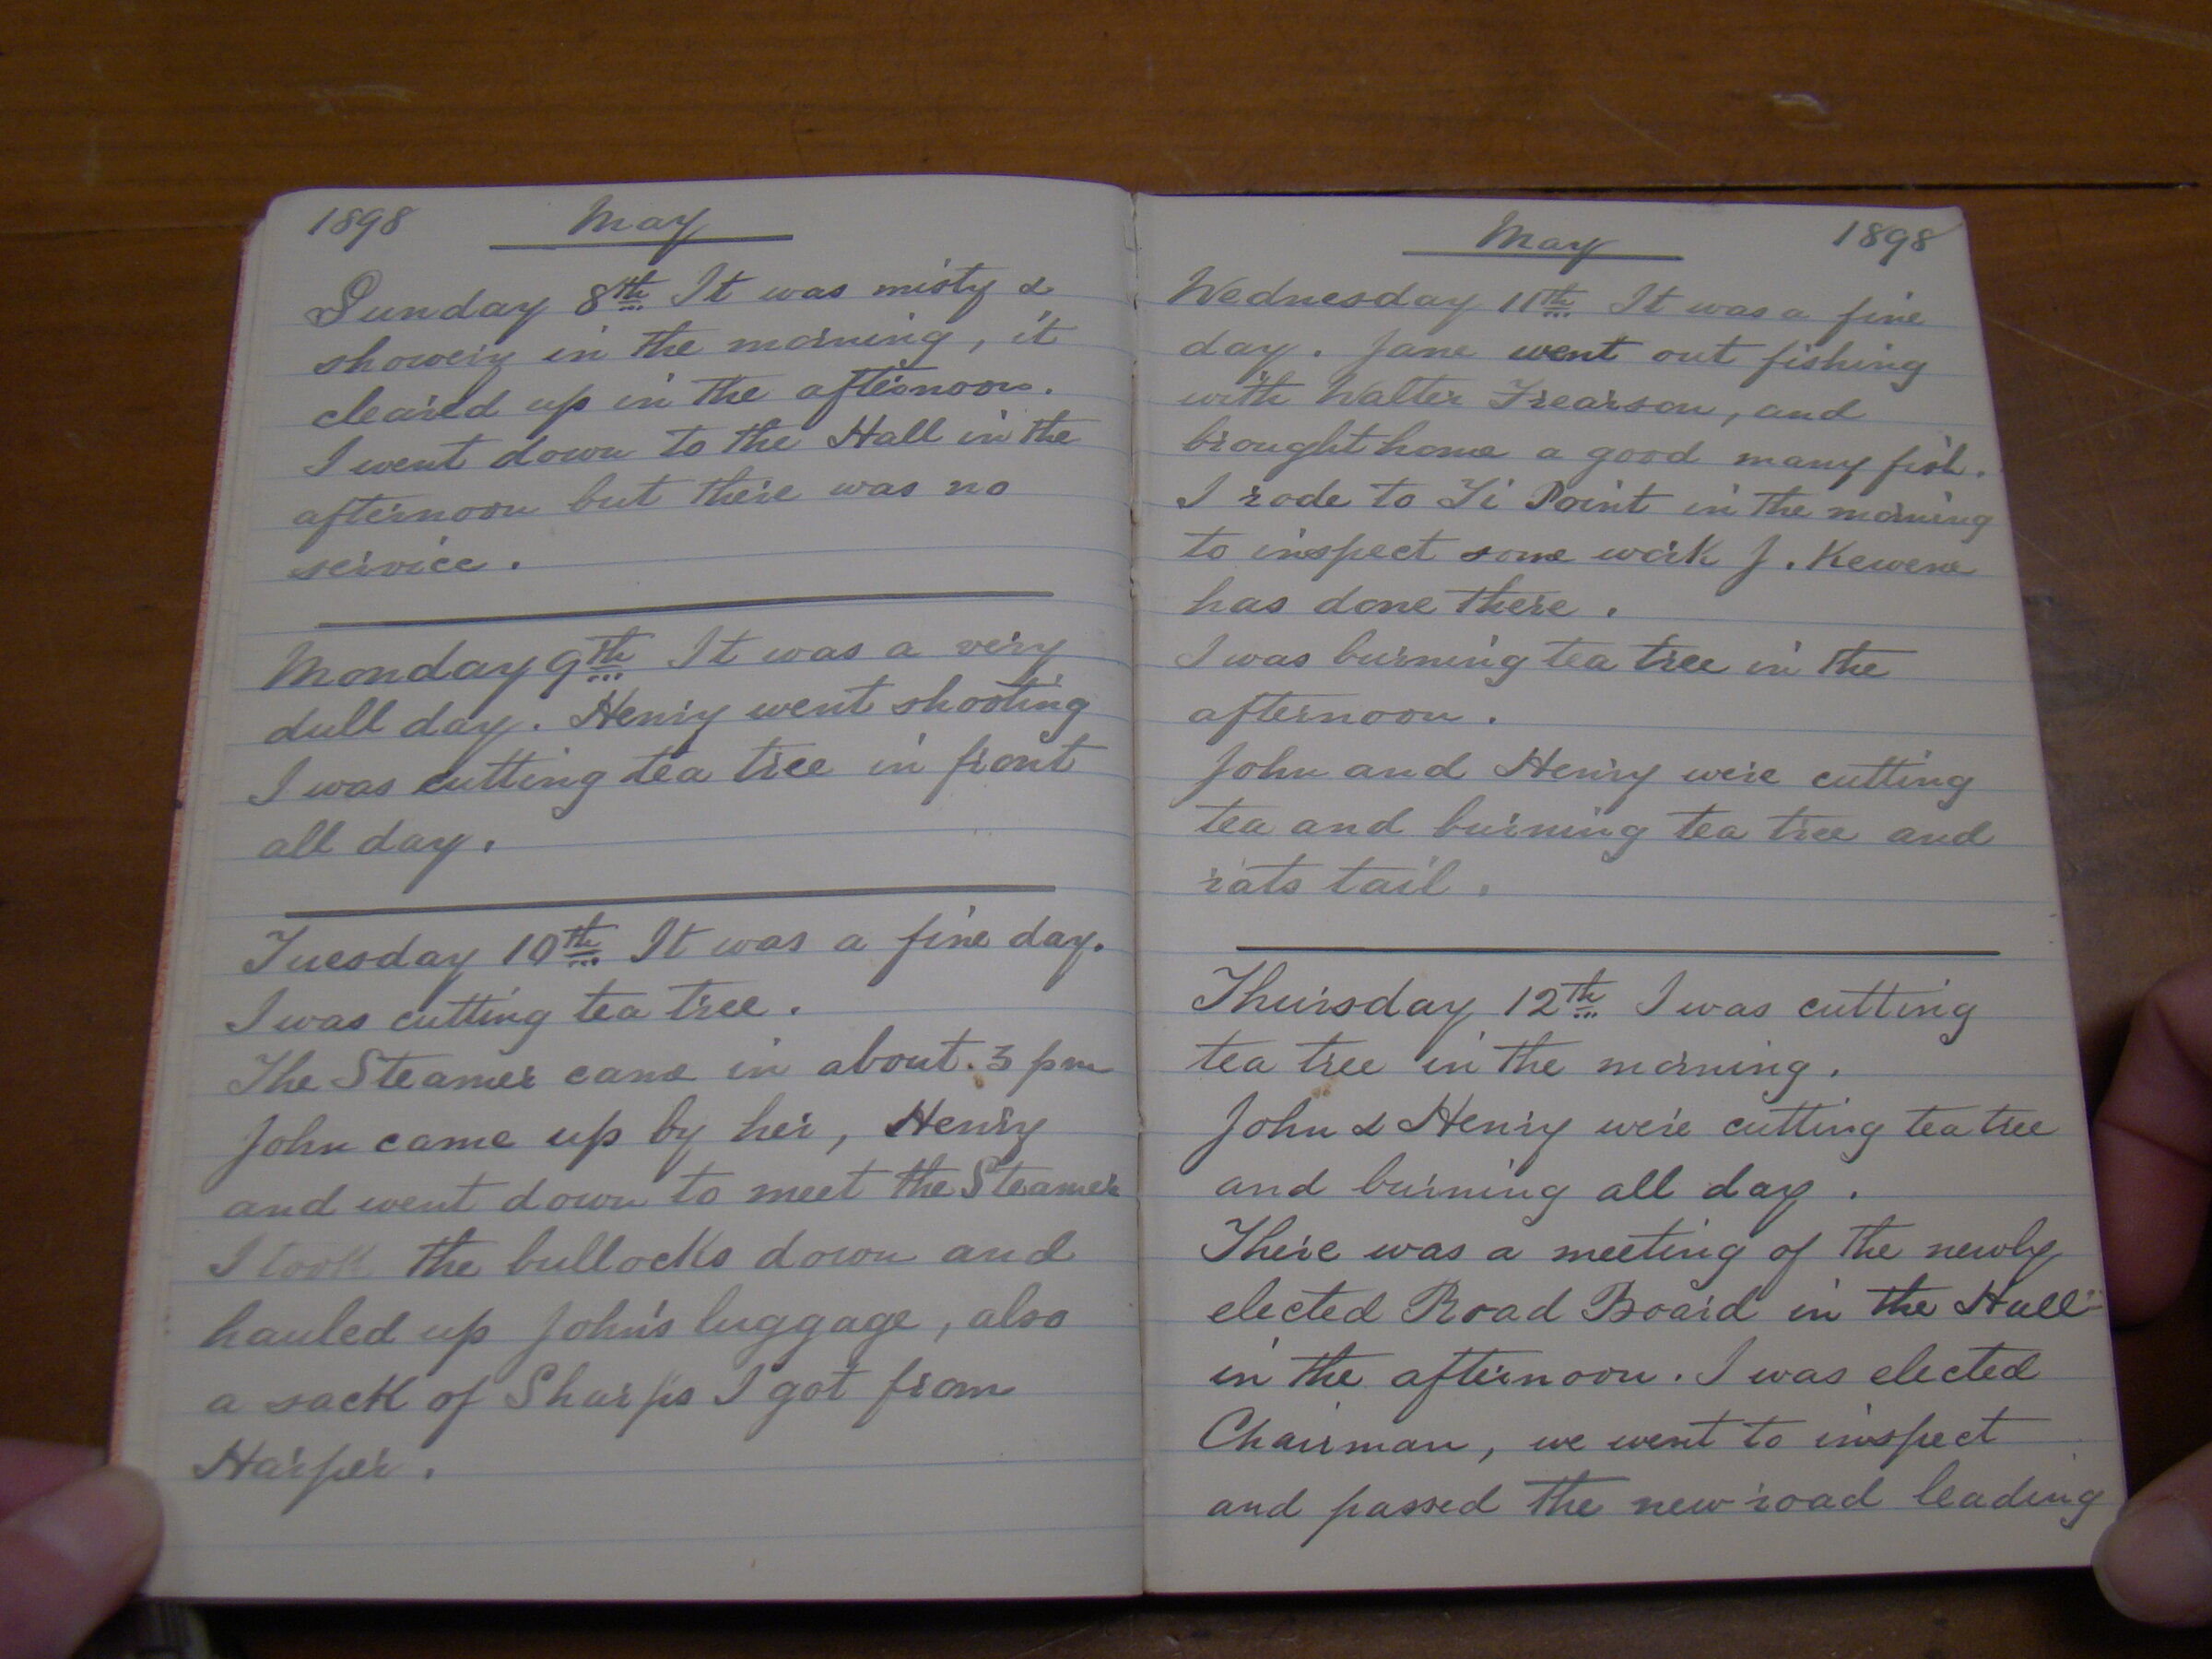 1898 May
Sunday 8th It was misty &
showery in the morning, it
cleared up in the afternoon.
I went down to the Hall in the
afternoon but there was no
service.
Monday 9th It was a very
dull day. Henry went shooting
I was cutting tea tree in front
all day.
Tuesday 10th It was a fine day.
I was cutting tea tree.
The Steamer came in about. 3 pm
John came up by her, Henry
and went down to meet the Steamer
I took the bullocks down and
hauled up John's luggage, also
a sack of Sharps I got from
Harper.
May 1898
Wednesday 11th It was a fine
day. Jane went out fishing
with Walter Frearson, and
brought home a good many fish.
I rode to Ti Point in the morning
to inspect some work J. Kewene
has done there.
I was burning tea tree in the
afternoon.
John and Henry were cutting
tea and burning tea tree and
rats tail.
Thursday 12th I was cutting
tea tree in the morning.
John & Henry were cutting tea tree
and burning all day.
There was a meeting of the newly
elected Road Board in the Hall
in the afternoon. I was elected
Chairman, we went to inspect
and passed the new road leading